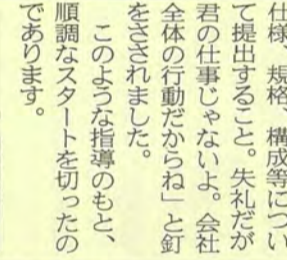 仕様、規格、構成等につい
て提出すること。失礼だが
君の仕事じゃないよ。会社
全体の行動だからね」と釘
をさされました。
　このような指導のもと、
順調なスタートを切ったの
であります。